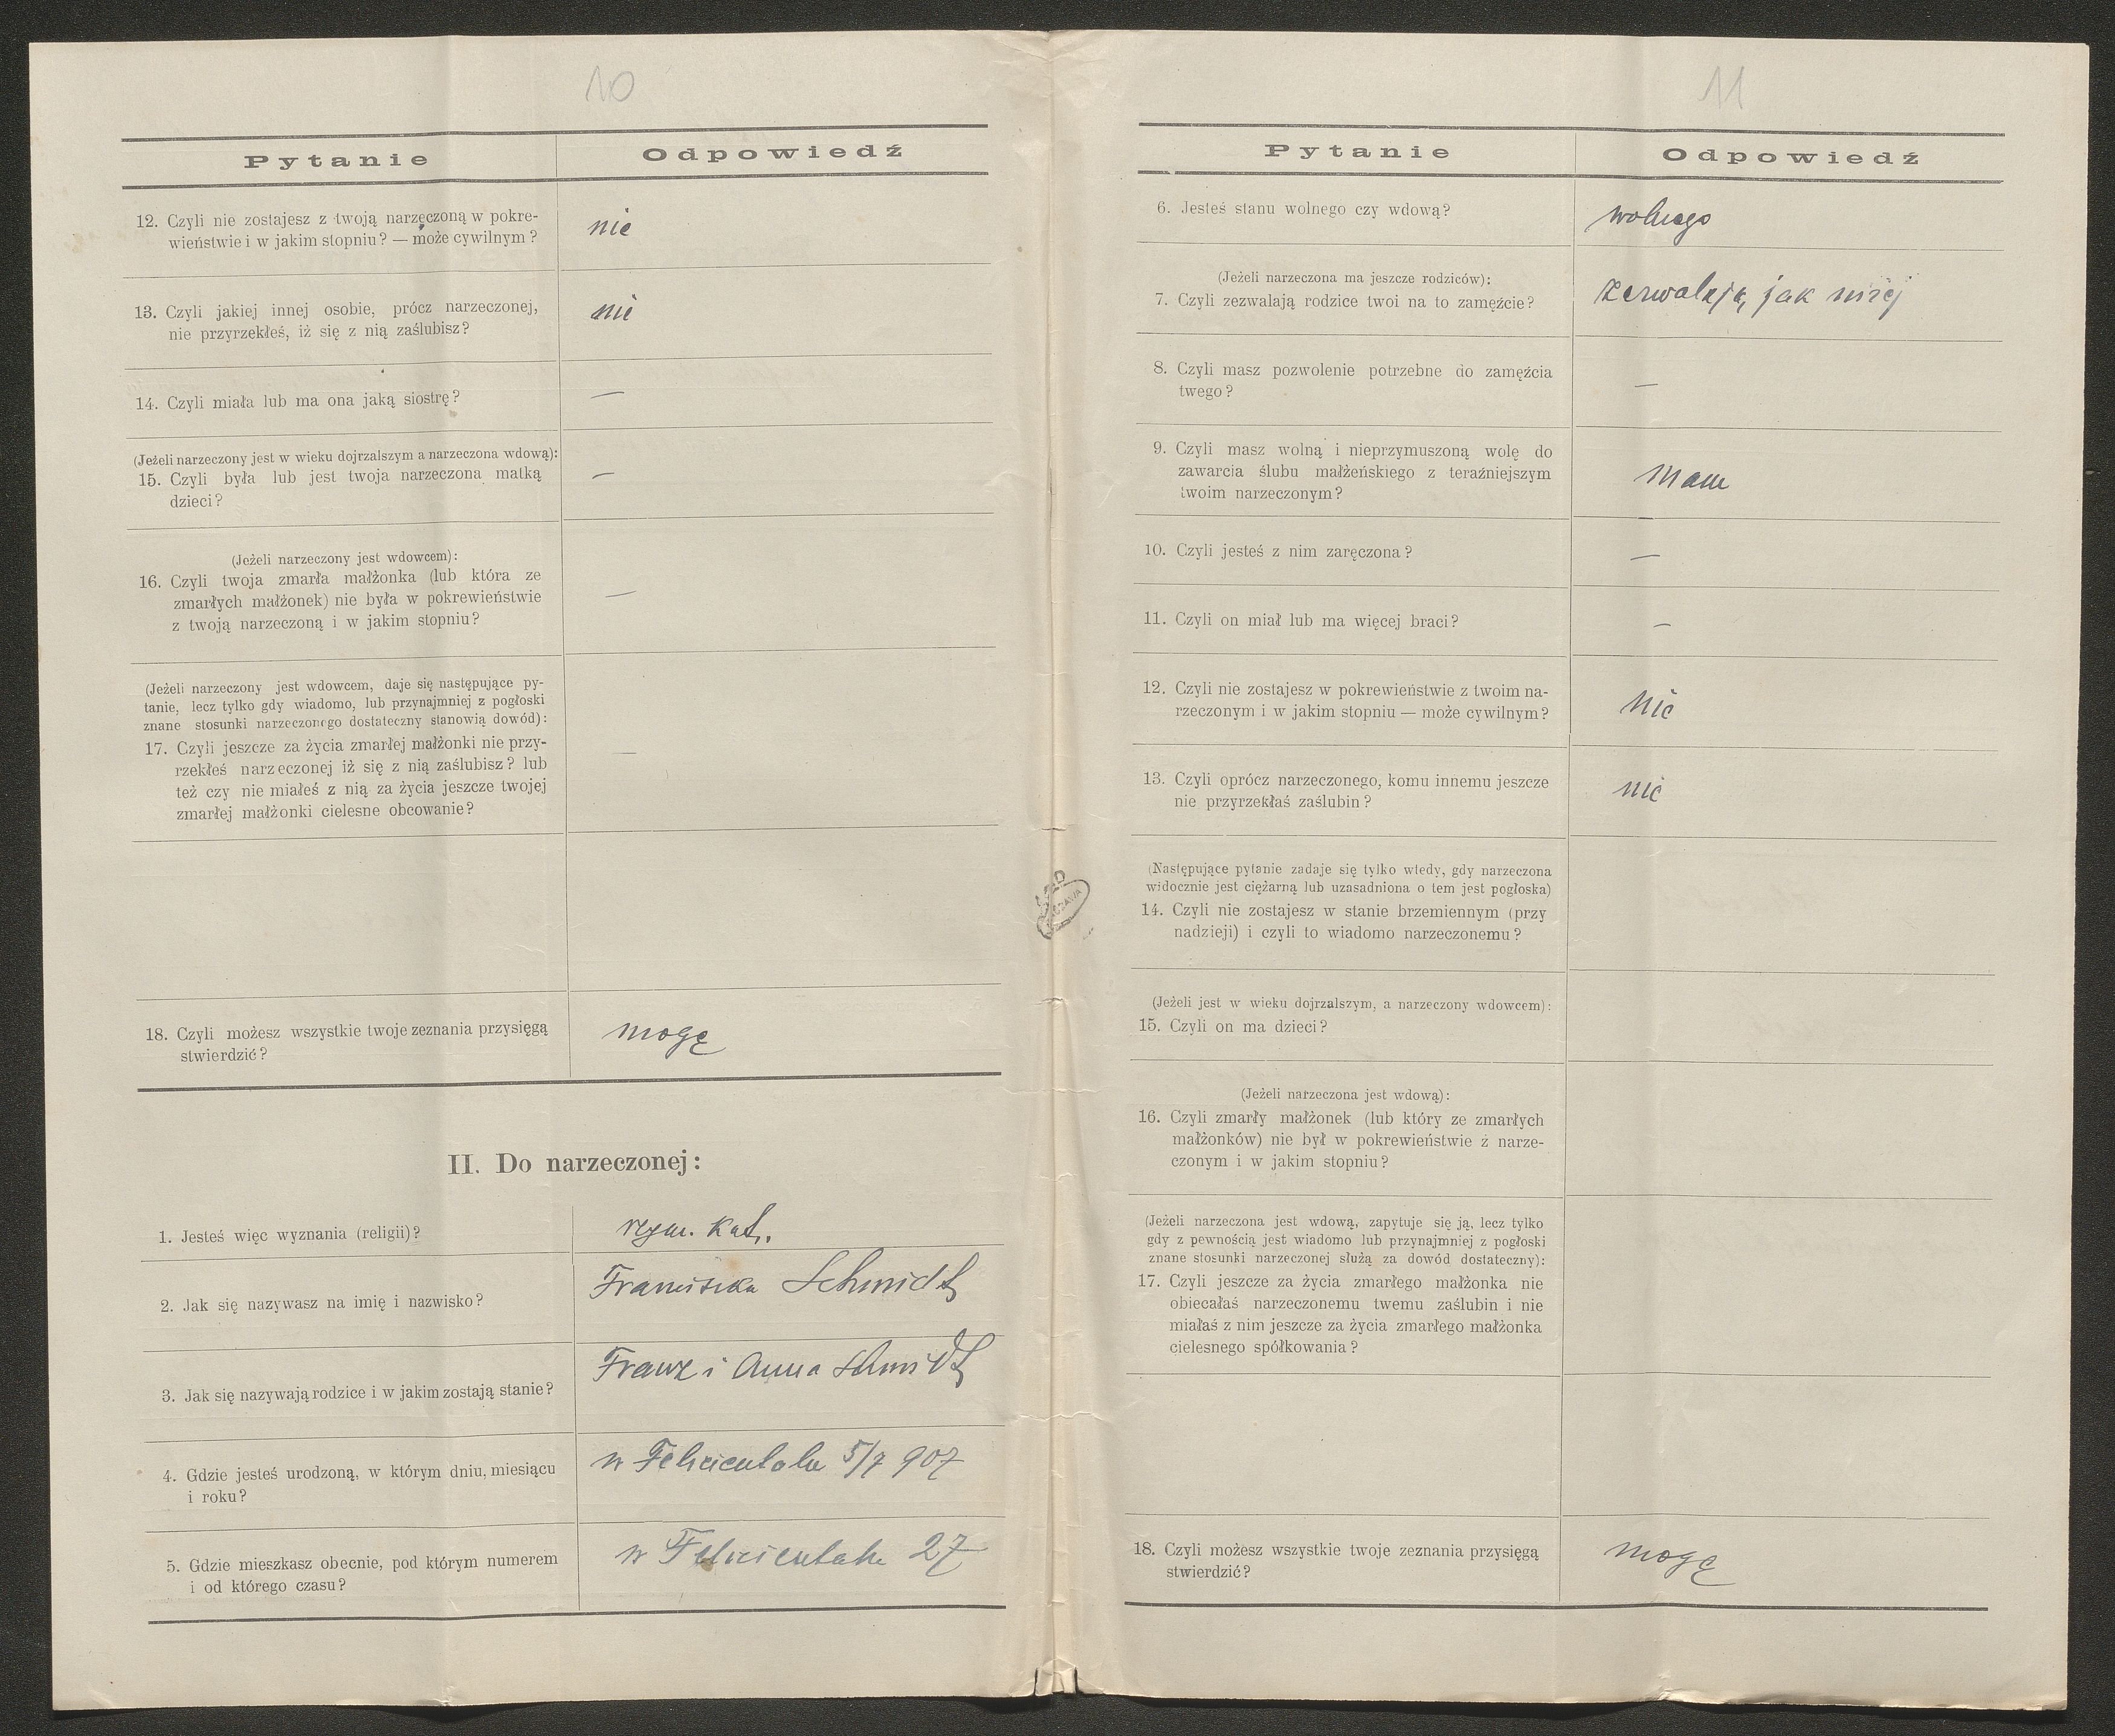 10
Pytanie
Odpowiedź
12. Czyli nie zostajesz z twoją narzęczoną w pokre-
wieństwie i w jakim stopniu? — może cywilnym?
nie
13. Czyli jakiej innej osobie, prócz narzeczonej,
nie przyrzekłeś, iż się z nią zaślubisz?
nie
14. Czyli miała lub ma ona jaką siostrę?
—
(Jeżeli narzeczony jest w wieku dojrzalszym a narzeczona wdową):
15. Czyli była lub jest twoja narzeczona matką
dzieci?
—
(Jeżeli narzeczony jest wdowcem):
16. Czyli twoja zmarła małżonka (lub która ze
zmarłych małżonek) nie była w pokrewieństwie
z twoją narzeczoną i w jakim stopniu?
—
(Jeżeli narzeczony jest wdowcem, daje się następujące py-
tanie, lecz tylko gdy wiadomo, lub przynajmniej z pogłoski
znane stosunki narzeczonego dostateczny stanowią dowód):
17. Czyli jeszcze za życia zmarłej małżonki nie przy-
rzekłeś narzeczonej iż się z nią zaślubisz? lub
też czy nie miałeś z nią za życia jeszcze twojej
zmarłej małżonki cielesne obcowanie?
—
18. Czyli możesz wszystkie twoje zeznania przysięgą
stwierdzić?
mogę
II. Do narzeczonej:
1. Jesteś więc wyznania (religii)?
rzym. kat.
2. Jak się nazywasz na imię i nazwisko?
Franciszka Schmidt
3. Jak się nazywają rodzice i w jakim zostają stanie?
Franz i Anna Schmidt
4. Gdzie jesteś urodzoną, w którym dniu, miesiącu
i roku?
w Felicientalu 5/7 907
5. Gdzie mieszkasz obecnie, pod którym numerem
i od którego czasu?
w Felicientalu 27
11
Pytanie
Odpowiedź
6. Jesteś stanu wolnego czy wdową?
wolnego
(Jeżeli narzeczona ma jeszcze rodziców):
7. Czyli zezwalają rodzice twoi na to zamęźcie?
zezwalają, jak niżej
8. Czyli masz pozwolenie potrzebne do zamęźcia
twego?
—
9. Czyli masz wolną i nieprzymuszoną wolę do
zawarcia ślubu małżeńskiego z teraźniejszym
twoim narzeczonym?
Mam
10. Czyli jesteś z nim zaręczona?
—
11. Czyli on miał lub ma więcej braci?
—
12. Czyli nie zostajesz w pokrewieństwie z twoim na-
rzeczonym i w jakim stopniu — może cywilnym?
nie
13. Czyli oprócz narzeczonego, komu innemu jeszcze
nie przyrzekłaś zaślubin?
nie
(Następujące pytanie zadaje się tylko wtedy, gdy narzeczona
widocznie jest ciężarną lub uzasadniona o tem jest pogłoska)
14. Czyli nie zostajesz w stanie brzemiennym (przy
nadzieji) i czyli to wiadomo narzeczonemu?
(Jeżeli jest w wieku dojrzalszym, a narzeczony wdowcem):
15. Czyli on ma dzieci?
(Jeżeli narzeczona jest wdową):
16. Czyli zmarły małżonek (lub który ze zmarłych
małżonków) nie był w pokrewieństwie z narze-
czonym i w jakim stopniu?
(Jeżeli narzeczona jest wdową, zapytuje się ją, lecz tylko
gdy z pewnością jest wiadomo lub przynajmniej z pogłoski
znane stosunki narzeczonej służą za dowód dostateczny):
17. Czyli jeszcze za życia zmarłego małżonka nie
obiecałaś narzeczonemu twemu zaślubin i nie
miałaś z nim jeszcze za życia zmarłego małżonka
cielesnego spółkowania?
18. Czyli możesz wszystkie twoje zeznania przysięgą
stwierdzić?
mogę